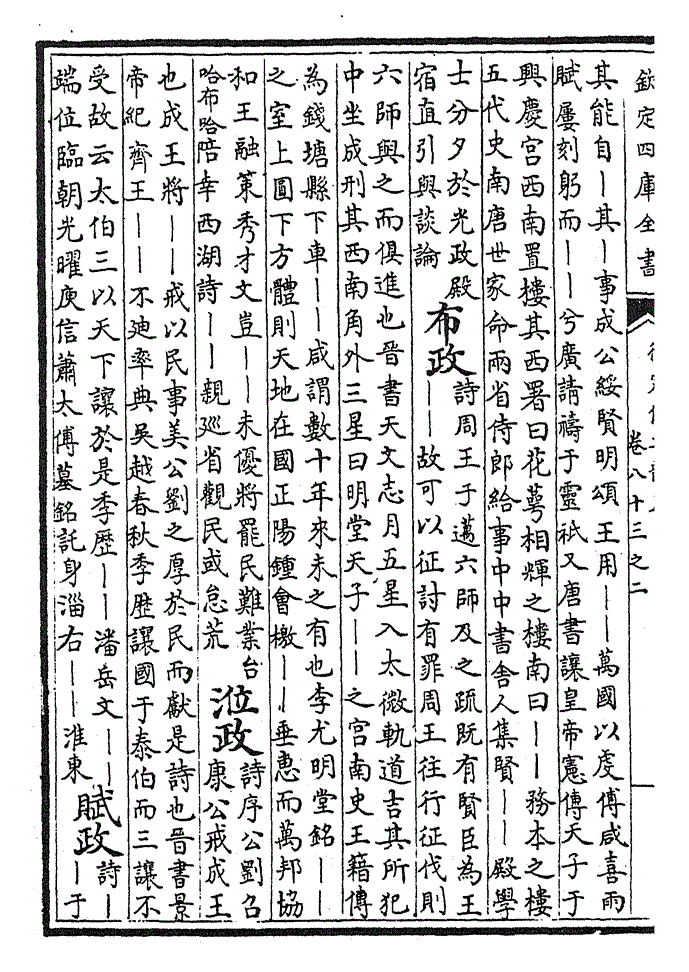 欽定四庫全書
卷八十三之二
其能自｜其｜事成公綏賢明頌王用｜｜萬國以虔傅咸喜雨
賦屢刻躬而｜｜兮廣請禱于靈祇又唐書讓皇帝憲傳天子于
興慶宮西南置樓其西署曰花萼相輝之樓南曰｜｜務本之樓
五代史南唐世家命兩省侍郎給事中中書舍人集賢｜｜殿學
士分夕於光政殿
宿直引與談論
布政
詩周王于邁六師及之疏既有賢臣為王
｜｜故可以征討有罪周王往行征伐則
六師與之而俱進也晉書天文志月五星入太微軌道吉其所犯
中坐成刑其西南角外三星曰明堂天子｜｜之宮南史王籍傳
為錢塘縣下車｜｜咸謂數十年來未之有也李尤明堂銘｜｜
之室上圓下方體則天地在國正陽鍾會檄｜｜垂惠而萬邦協
和王融策秀才文豈｜｜未優將罷民難業台
哈布哈陪幸西湖詩｜｜親廵省觀民或怠荒
涖政
詩序公劉召
康公戒成王
也成王將｜｜戒以民事美公劉之厚於民而獻是詩也晉書景
帝紀齊王｜｜不廸率典吳越春秋季歷讓國于泰伯而三讓不
受故云太伯三以天下讓於是季歷｜｜潘岳文｜｜
端位臨朝光曜庾信蕭太傅墓銘託身淄右｜｜淮東
賦政
詩｜
｜于